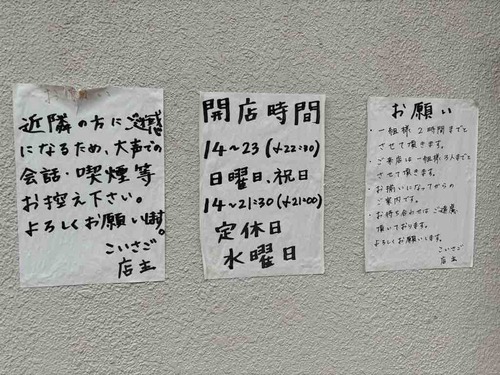 近隣の方に迷惑
になるため、大声での
会話・喫煙等
お控え下さい。
よろしくお願い致します。
こいさご
店主
開店時間
14〜23(ﾒ22:00)
日曜日、祝日
14〜21:30(ﾒ21:00)
定休日
水曜日
お願い
・一組様2時間までと
させて頂きます。
・ご来店は一組様3人までと
させて頂きます。
・お揃いになってからの
ご案内です。
・お待ち合わせはご遠慮
頂いております。
よろしくお願いします。
こいさご
店主